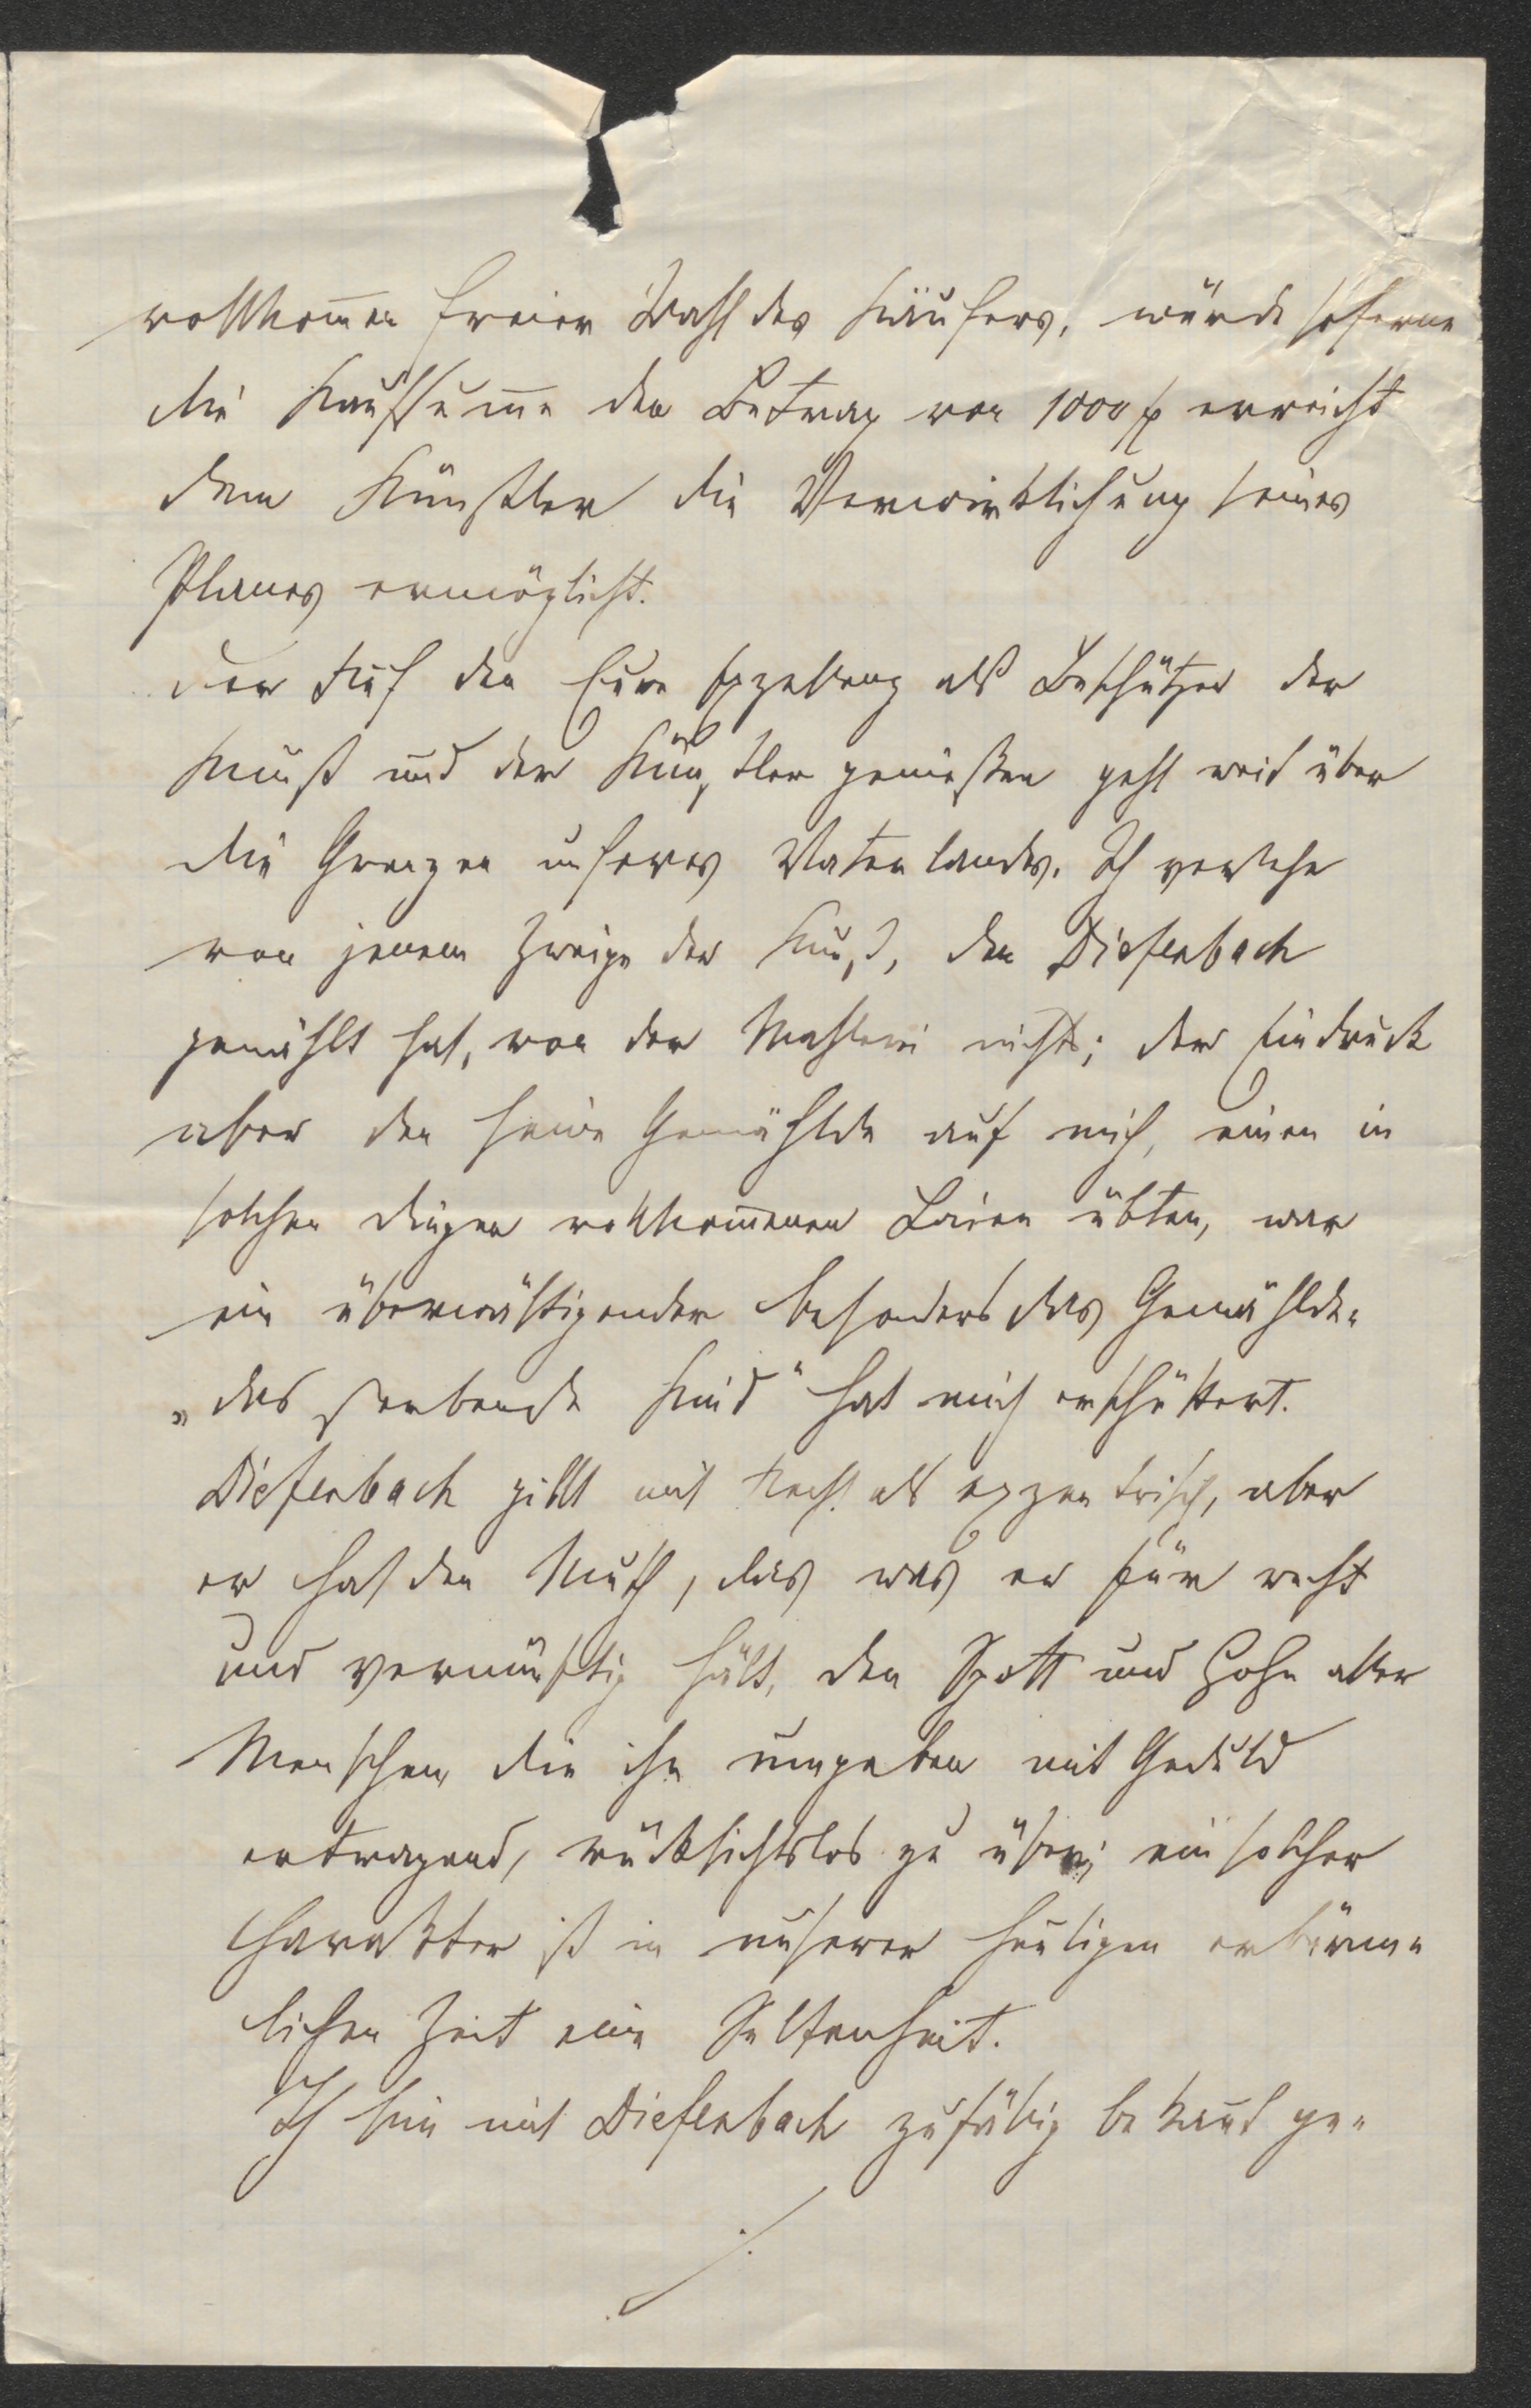 vollkom̅en freier Wahl des Käufers, würde soferne
die Kaufsum̅e den Betrag von 1000 f erreicht
dem Künstler die Verwirklichung seines
Planes ermöglicht.
Der Ruf den Eure Exzellenz als Beschützer der
Kunst und der Künstler genießen geht weit über
die Grenzen unseres Vaterlandes. Ich verstehe
von jenem Zweige der Kunst, den Diefenbach
gewählt hat, von der Mahlerei nichts; der Eindruck
aber den seine Gemählde auf mich, einen in
solchen Dingen vollkom̅enen Laien übten, war
ein überwältigender besonders das Gemählde
„das sterbende Kind" hat mich erschüttert.
Diefenbach gilt mit Recht als exzentrisch, aber
er hat den Muth, das was er für recht
und vernünftig hält, den Spott und Hohn aller
Menschen die ihn umgeben mit Geduld
ertragend, rücksichtslos zu üben; ein solcher
Charakter ist in unserer heutigen erbärm-
lichen Zeit eine Seltenheit.
Ich bin mit Diefenbach zufällig bekannt ge-
./.